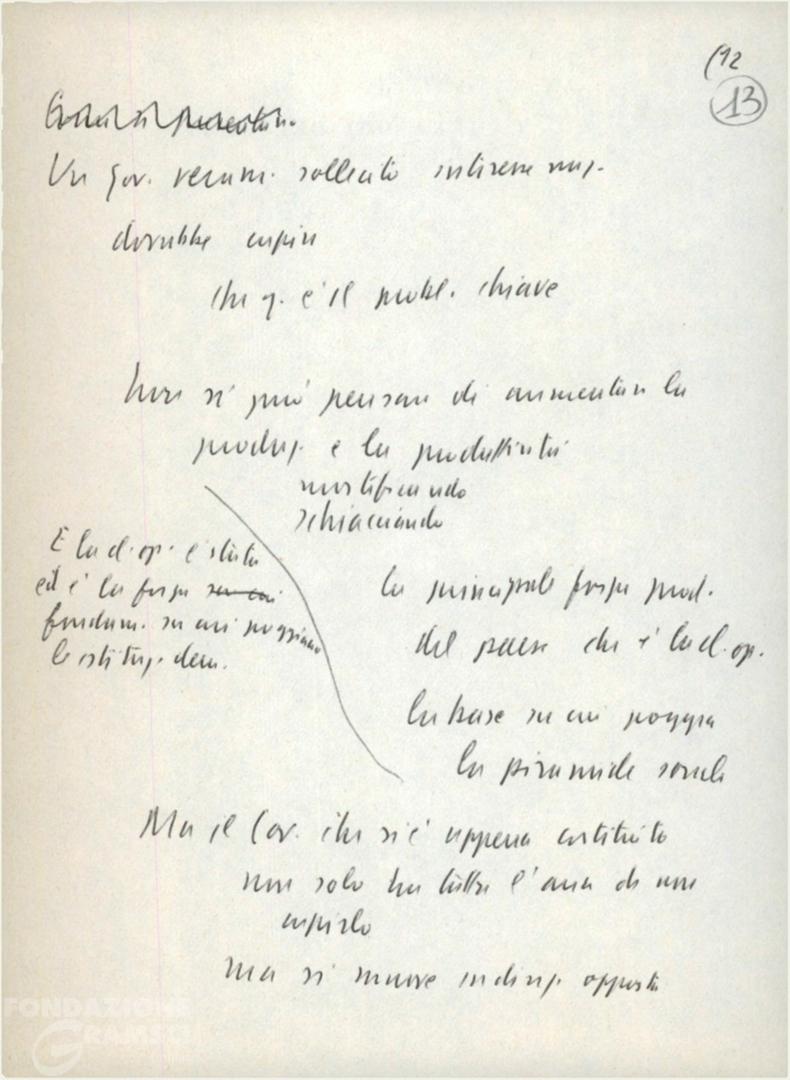 (12
13
Un Gov. veram. sollecito
dovrebbe capire
che q. è il probl. chiave
Non si può pensare di aumentare la
produz. e la produttività
mortificando
schiacciando
la principale forza prod.
del paese che è la cl. op.
la base su cui poggia
la piramide sociale
E la cl. op. è stata
ed è la forza su cui
fondam. su cui poggiano
le istituz. dem.
Ma il Gov. che si è appena costituito
non solo ha tutta l'aria di non
capirlo
ma si muove in direz. opposta
FONDAZIONE
GRAMSCI